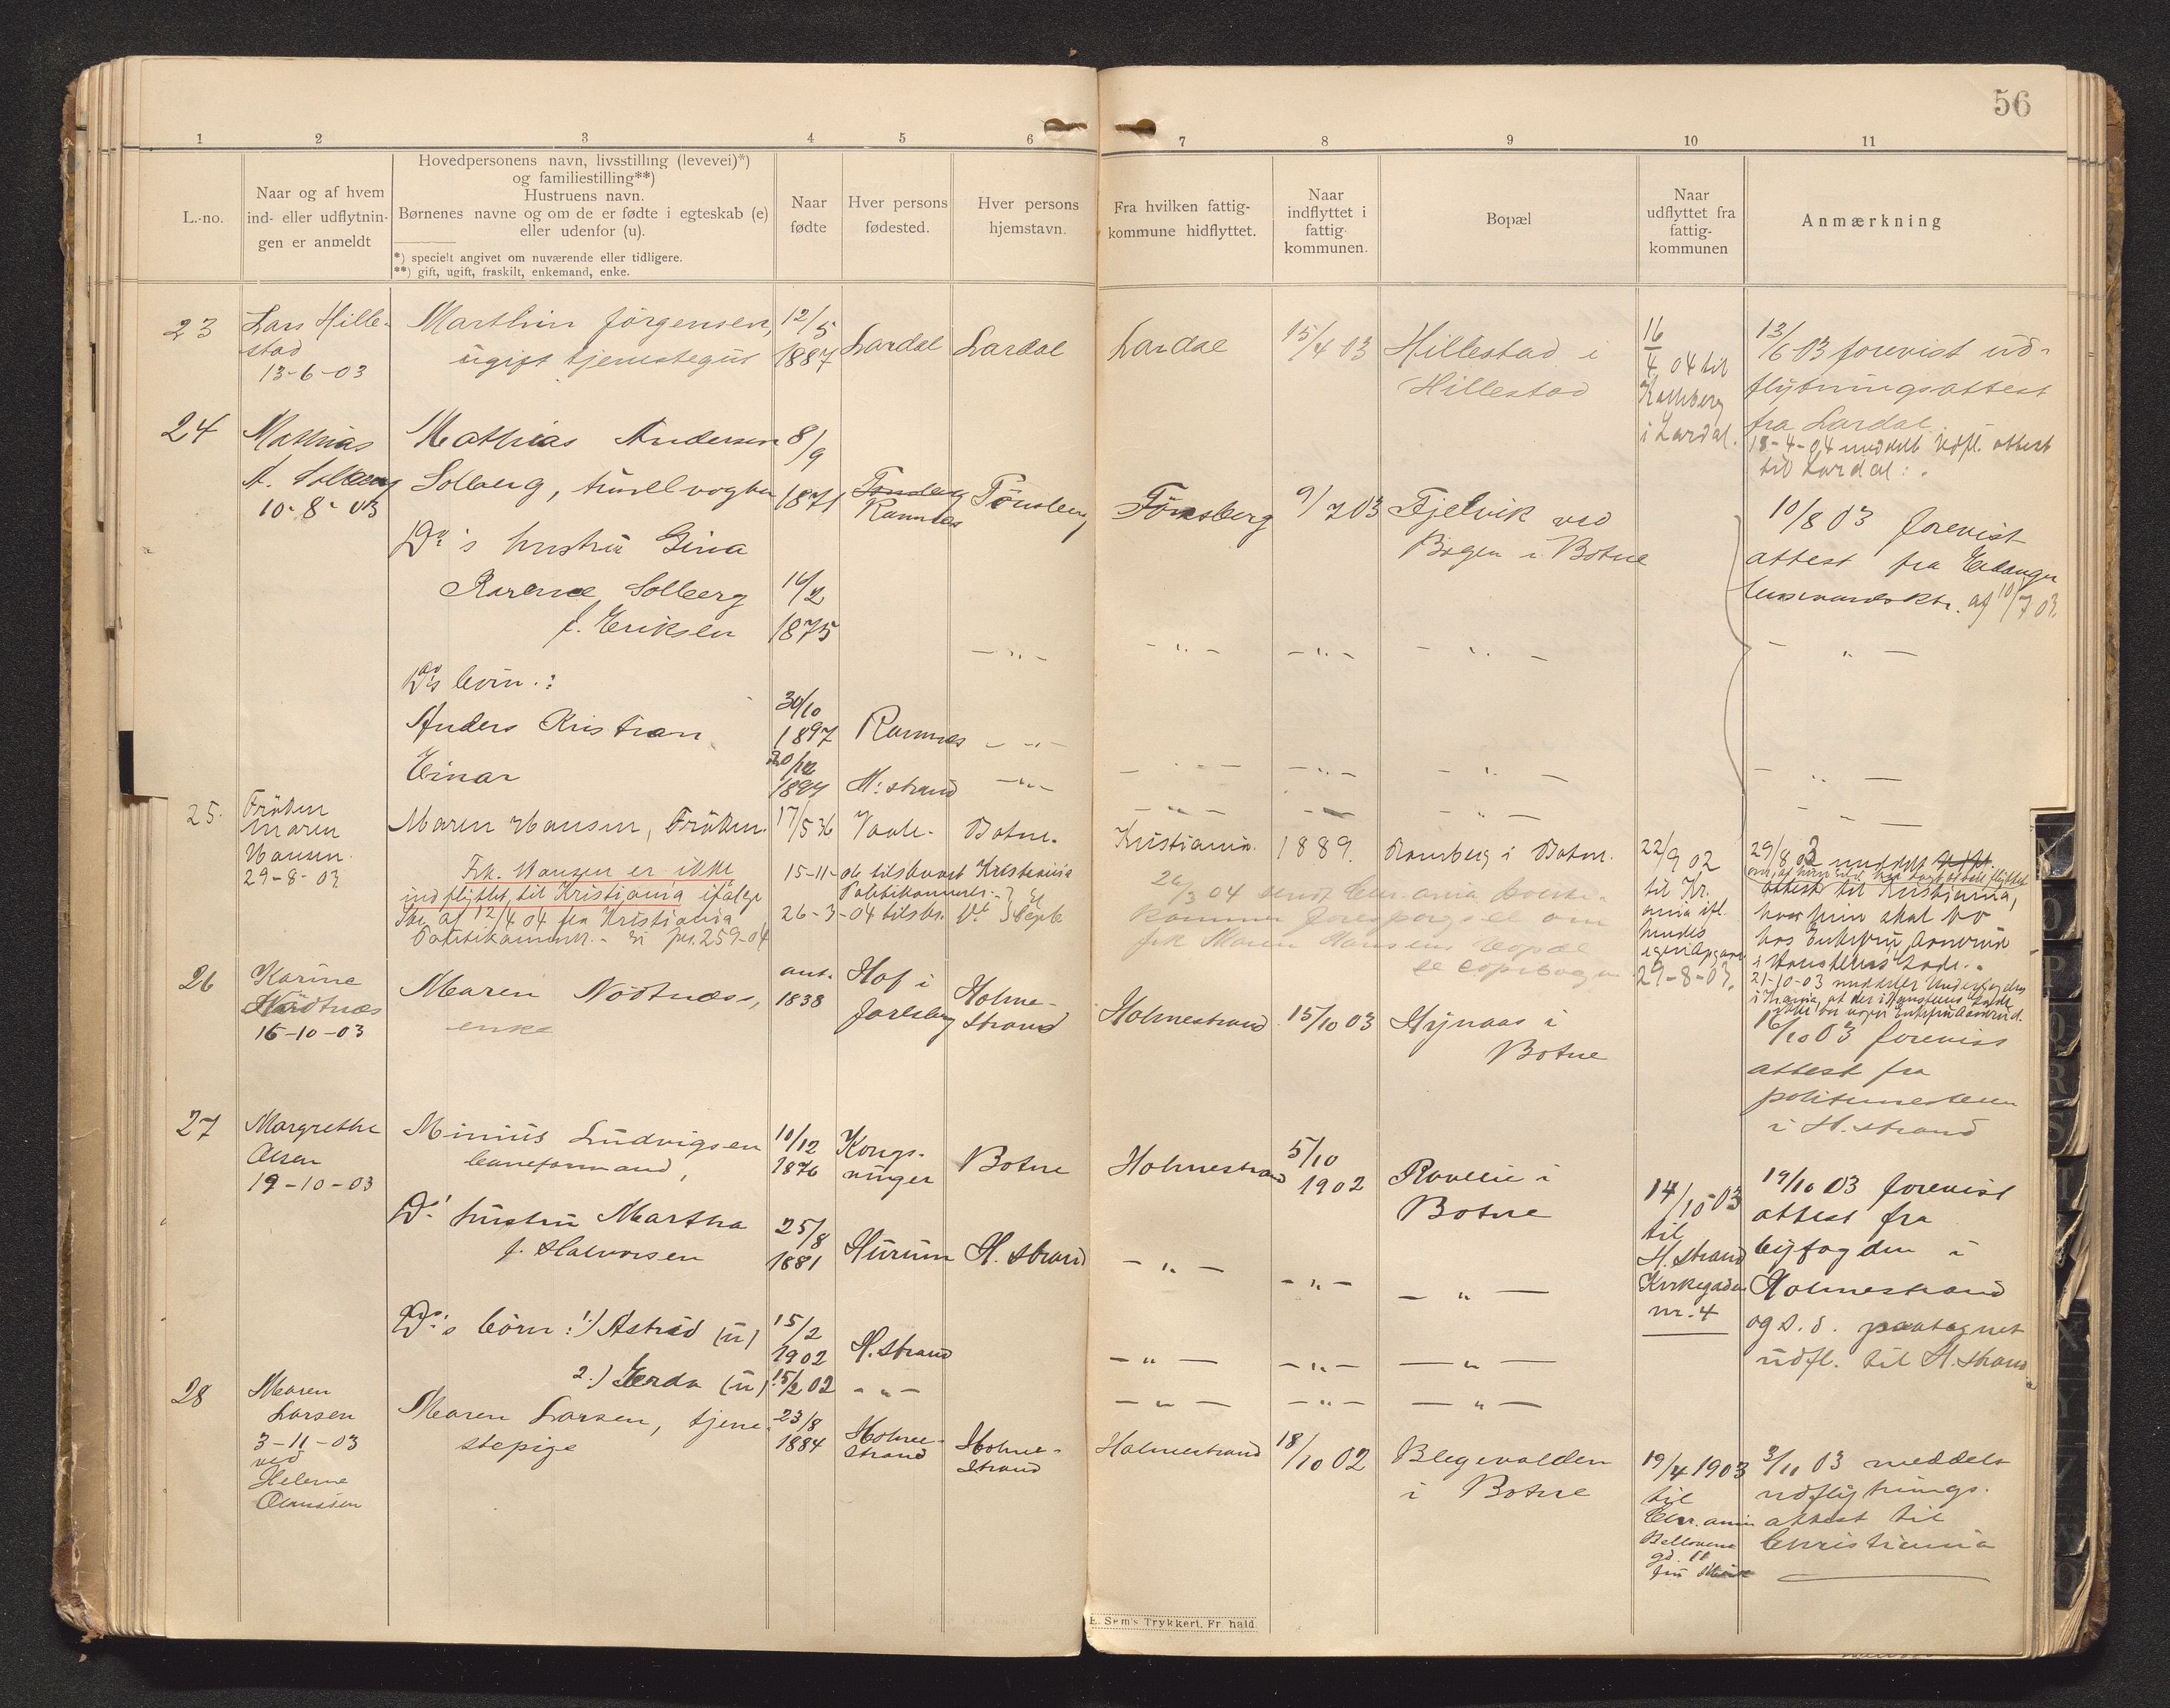 56
1 2 3 4 5 6 7 8 9 10 11
L.-no.
Naar og af hvem
ind- eller udflytnin-
gen er anmeldt
Hovedpersonens navn, livsstilling (levevei)*)
og familiestilling**)
Hustruens navn.
Børnenes navne og om de er fødte i egteskab (e)
eller udenfor (u).
*) specielt angivet om nuværende eller tidligere.
**) gift, ugift, fraskilt, enkemand, enke.
Naar
fødte
Hver persons
fødested.
Hver persons
hjemstavn.
Fra hvilken fattig-
kommune hidflyttet.
Naar
indflyttet i
fattig-
kommunen.
Bopæl
Naar
udflyttet fra
fattig-
kommunen
Anmærkning
23
Lars Hille-
stad
13-6-03
Marthin Jörgensen,
ugift tjenestegut
12/5
1887
Lardal
Lardal
Lardal
15/4 03
Hillestad i
Hillestad
16/4 04 til
i Lardal.
13/6 03 forevist ud-
flytningsattest
fra Lardal.
18-4-04 meddelt Udfl. attest
til Lardal.
24
Mathias
A. Solberg
10-8-03
Mathias Andersen
Solberg,
8/9
1871
Tönsberg
Ramnes
Tönsberg
Tönsberg
9/7 03
Fjelvik ved
Bogen i Botne
10/8 03 forevist
attest fra Eidanger
af 10/7 03.
Do's hustru Gina
Karence Solberg
f. Eriksen
16/2
1875
— „ —
— „ —
— „ —
— „ —
— „ —
Do's börn.:
Anders Kristian
30/10
1897
Ramnes
— „ —
— „ —
— „ —
— „ —
— „ —
Einar
20/12
1899
H:strand
— „ —
— „ —
— „ —
— „ —
— „ —
25.
Fröken
Maren
Hansen.
29-8-03
Maren Hansen, Fröken.
17/5 36
Vaale.
Botne.
Kristiania.
1889.
Ramberg i Botne.
22/9 02
til Kr.
ania ifl.
hendes
29-8-03.
29/8 03 meddelt
attest til Kristiania,
hvor hun skal bo
hos Enkefru Aamrud
Frk. Hansen er ikke
indflyttet til Kristiania ifølge
Skr. af 12/4 04 fra Kristiania
Politikammer.
15-11-04 tilskrevet Kristiania
Politikammer.
26-3-04 tilskr.
26/3 04 sendt Chr.ania politi-
kammer forespørgsel om
frk Maren Hansens bopæl
se copibogen
21-10-03
26
Karine
Nödtnæs
16-10-03
Maren Nödtnæs,
enke
ant.
1838
Hof i
Jarlsberg
Holme-
strand
Holmestrand
15/10 03
Hynaas i
Botne
16/10 03 forevist
attest fra
politimesteren
i H.strand
27
Margrethe
Olsen
19-10-03
Minius Ludvigsen
baneformand,
10/12
1876
Kongs-
vinger
Botne
Holmestrand
5/10
1902
Botne
14/10-03
til
H.strand
Kirkegaden
nr. 4
19/10 03 forevist
attest fra
byfogden i
Holmestrand
og s. d. paategnet
udfl. til H.strand
Do. hustru Martha
f. Halvorsen
25/8
1881
Hurum
H.strand
— „ —
— „ —
— „ —
Do's börn: 1) Astrid (u)
15/2
1902
H.strand
— „ —
— „ —
— „ —
2.) Gerda (u)
15/2 02
— „ —
— „ —
— „ —
— „ —
28
Maren
Larsen
3-11-03
ved
Helene
Maren Larsen, tjene-
stepige
23/8
1884
Holme-
strand
Holme-
strand
Holmestrand
18/10 02
Blegevolden
i Botne
19/4 1903
til
Chr.ania
3/11 03 meddelt
udflytnings-
attest til
Christiania
E. Sem's Trykkeri, Fr.hald.